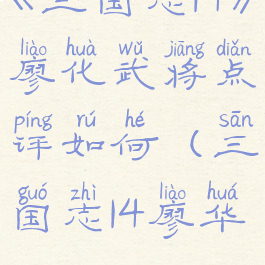 《三国志14》
liào huà wǔ jiāng diǎn
廖化武将点
píng rú hé sān
评如何(三
guó zhì liào huá
国志14廖华